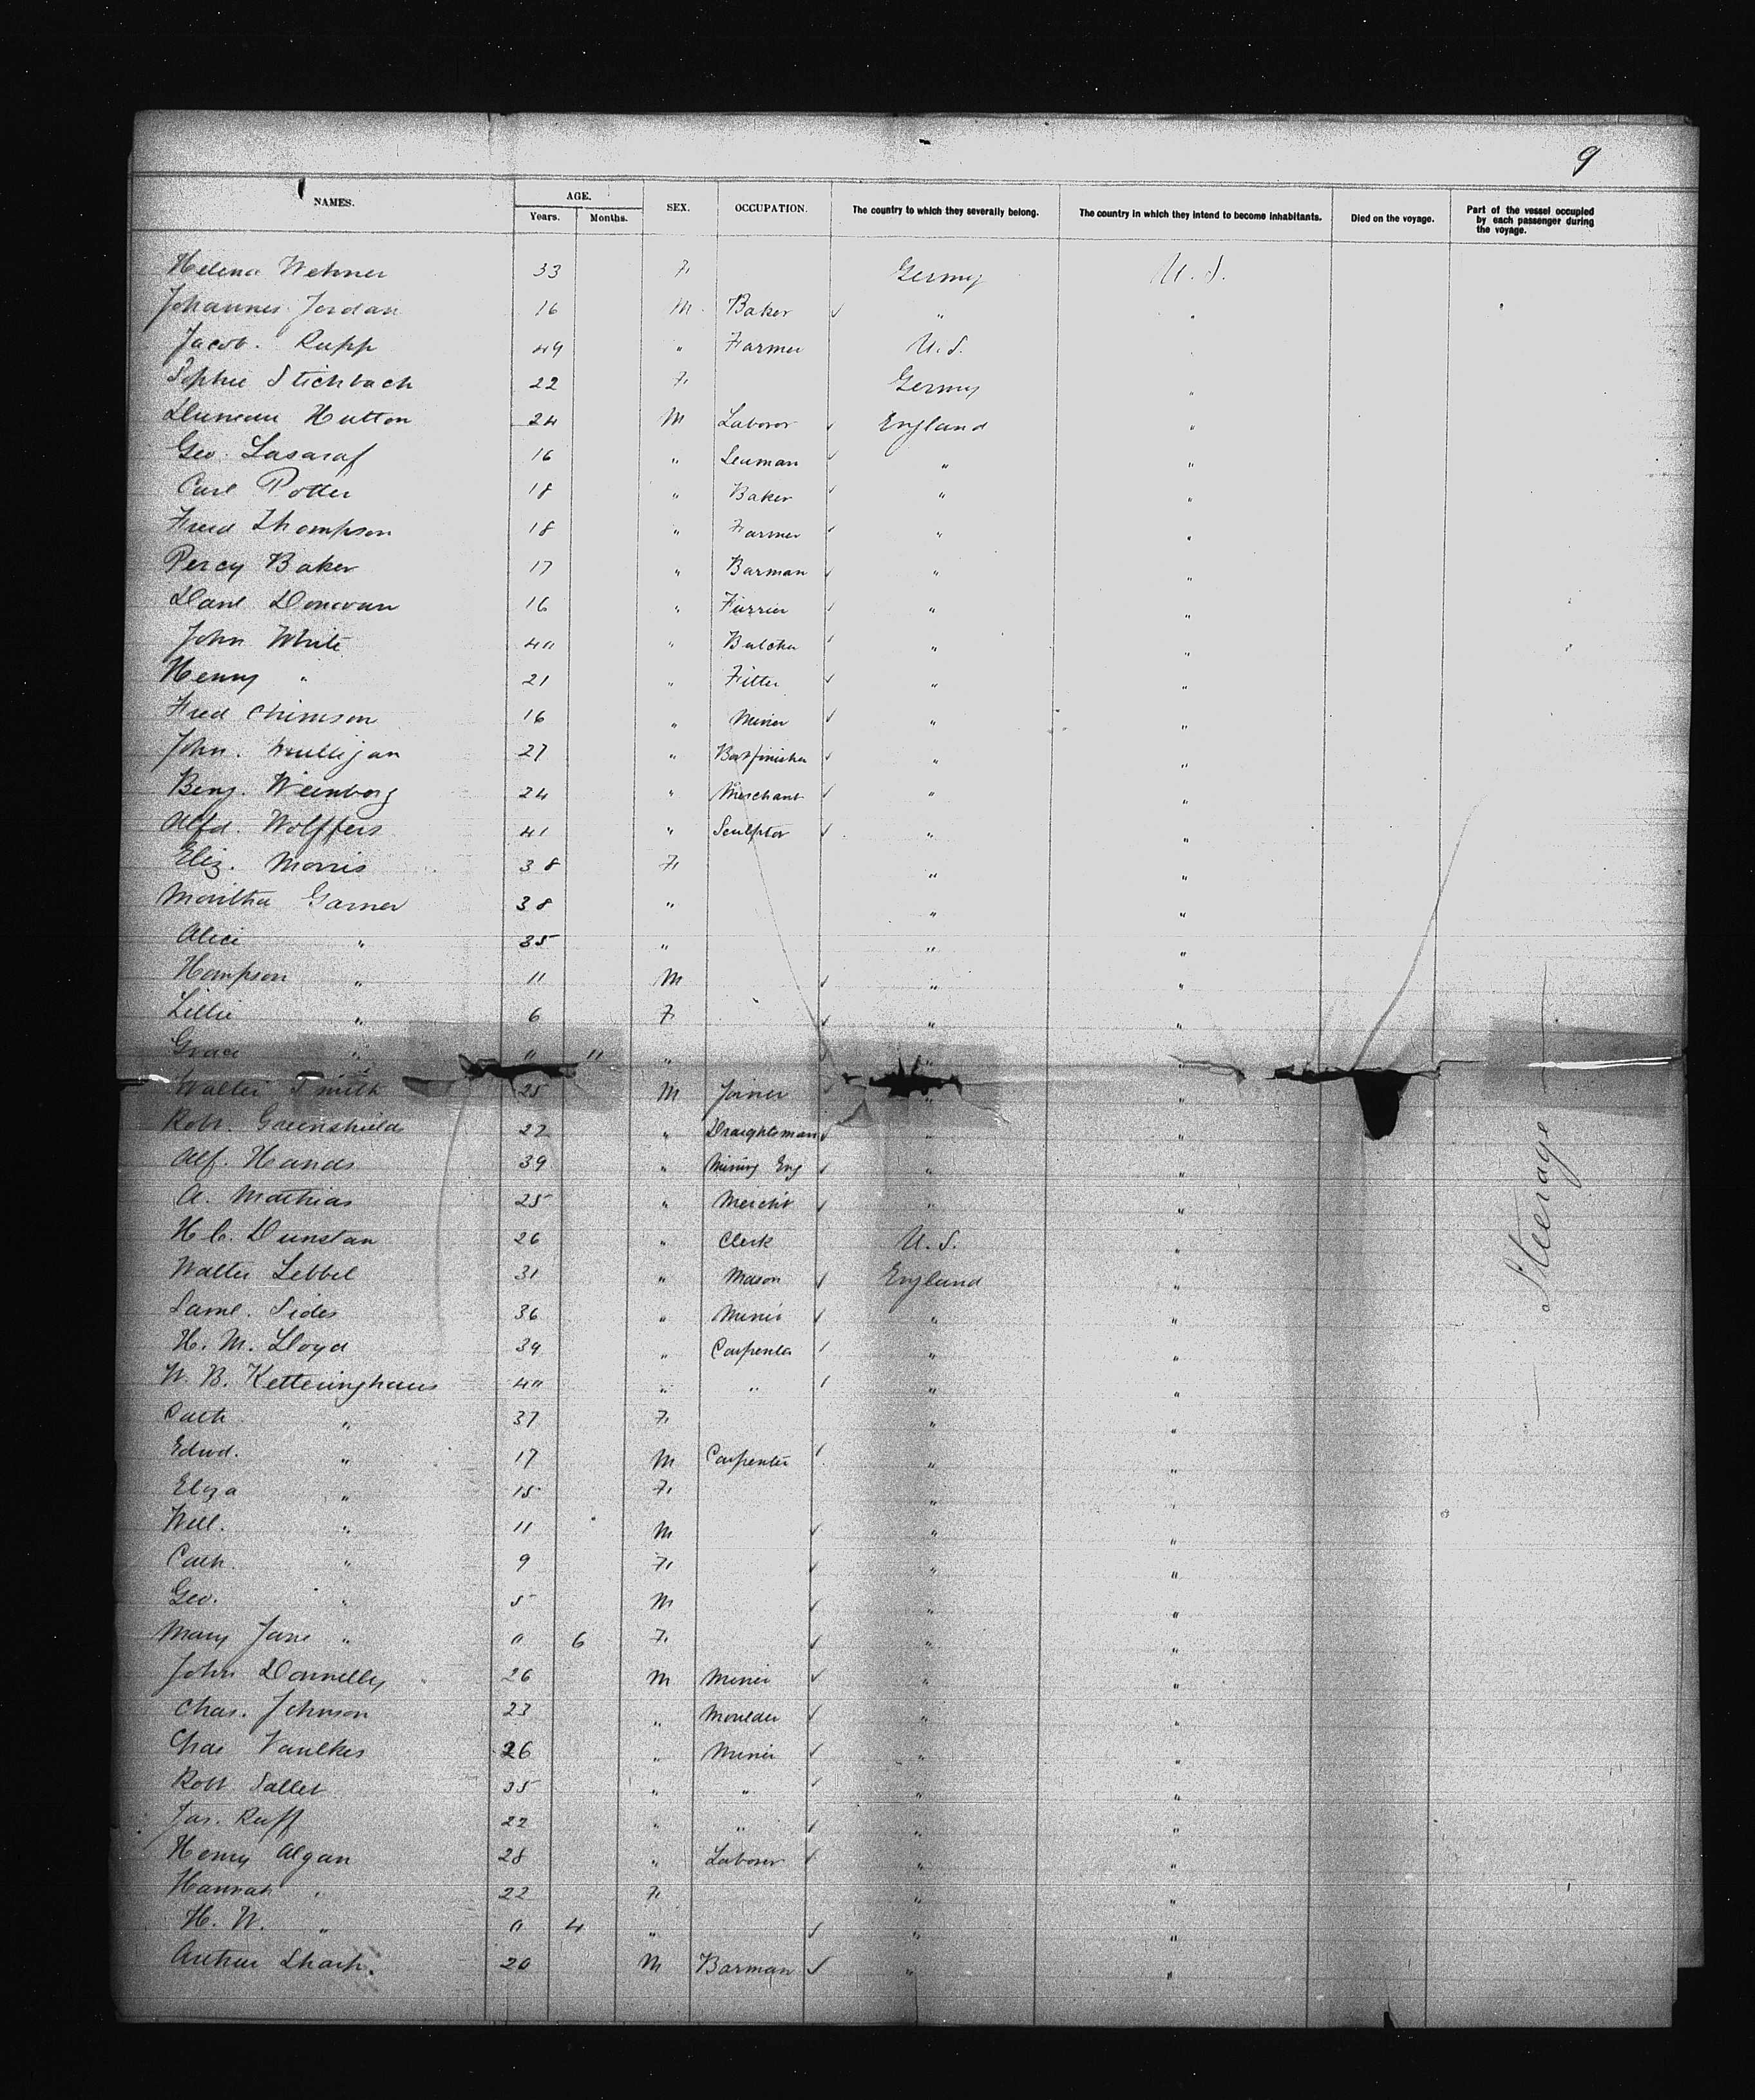 9
NAMES. AGE. SEX. OCCUPATION. The country to which they severally belong. The country in which they intend to become inhabitants. Died on the voyage. Part of the vessel occupied by each passenger during the voyage.
Years. Months.
Helena Wehner 33 F. Germy U.S.
Johannes Jordan 16 M. Baker ✓ " "
Jacob. Rupp 49 " Farmer U.S.
Sophie Stichbach 22 F. Germy "
Duncan Hutton 24 M Laboror ✓ England "
Geo. Lasaraf 16 " Seaman ✓ " "
Carl Potter 18 " Baker ✓ " "
Fred Thompson 18 " Farmer ✓ " "
Percy Baker 17 " Barman ✓ " "
Danl Donovan 16 " Furrier ✓ " "
John White 40 " Butcher ✓ " "
Henry " 21 " Fitter ✓ " "
Fred 16 " Miner ✓ " "
John. Mulligan 27 " ✓ " "
Benj. Weinborg 24 " Merchant ✓ " "
Alfd. Wolffers 41 " Sculptor ✓ " "
Eliz. Morris 38 F. " "
Garner 38 " " "
Alice " 35 " " "
Hampson " 11 M ✓ " "
Lillie " 6 F. ✓ " "
Grace " 0 11 " ✓ " "
Walter Smith 25 M Joiner ✓ " "
Robt. Greenshields 22 " Draughtsman ✓ " "
Alf. Hands 39 " Mining Eng ✓ " "
A. Mathias 25 " Mercht ✓ " "
H C. Dunstan 26 " Clerk U.S. "
Walter Lebbel 31 " Mason ✓ England "
Saml. Sides 36 " Miner ✓ " "
H. M. Lloyd 39 " Carpenter ✓ " "
W. B. Ketteringhaus 40 " " ✓ " "
Cath " 37 F. " "
Edwd. " 17 M Carpenter ✓ " "
Eliza " 15 F. " "
Will. " 11 M ✓ " "
Cath. " 9 F. ✓ " "
Geo. " 5 M ✓ " "
Mary Jane " 0 6 F. ✓ " "
John Donnelly 26 M Miner ✓ " "
Chas. Johnson 23 " Moulder ✓ " "
Chas Vaulkes 26 " Miner ✓ " "
Robt Sallet 35 " " ✓ " "
Jas. Ruff 22 " " ✓ " "
Henry Algan 28 " Laborer ✓ " "
Hannah " 22 F. " "
H. W. " 0 4 " ✓ " "
Arthur Sharp. 20 M Barman ✓ " "
Steerage